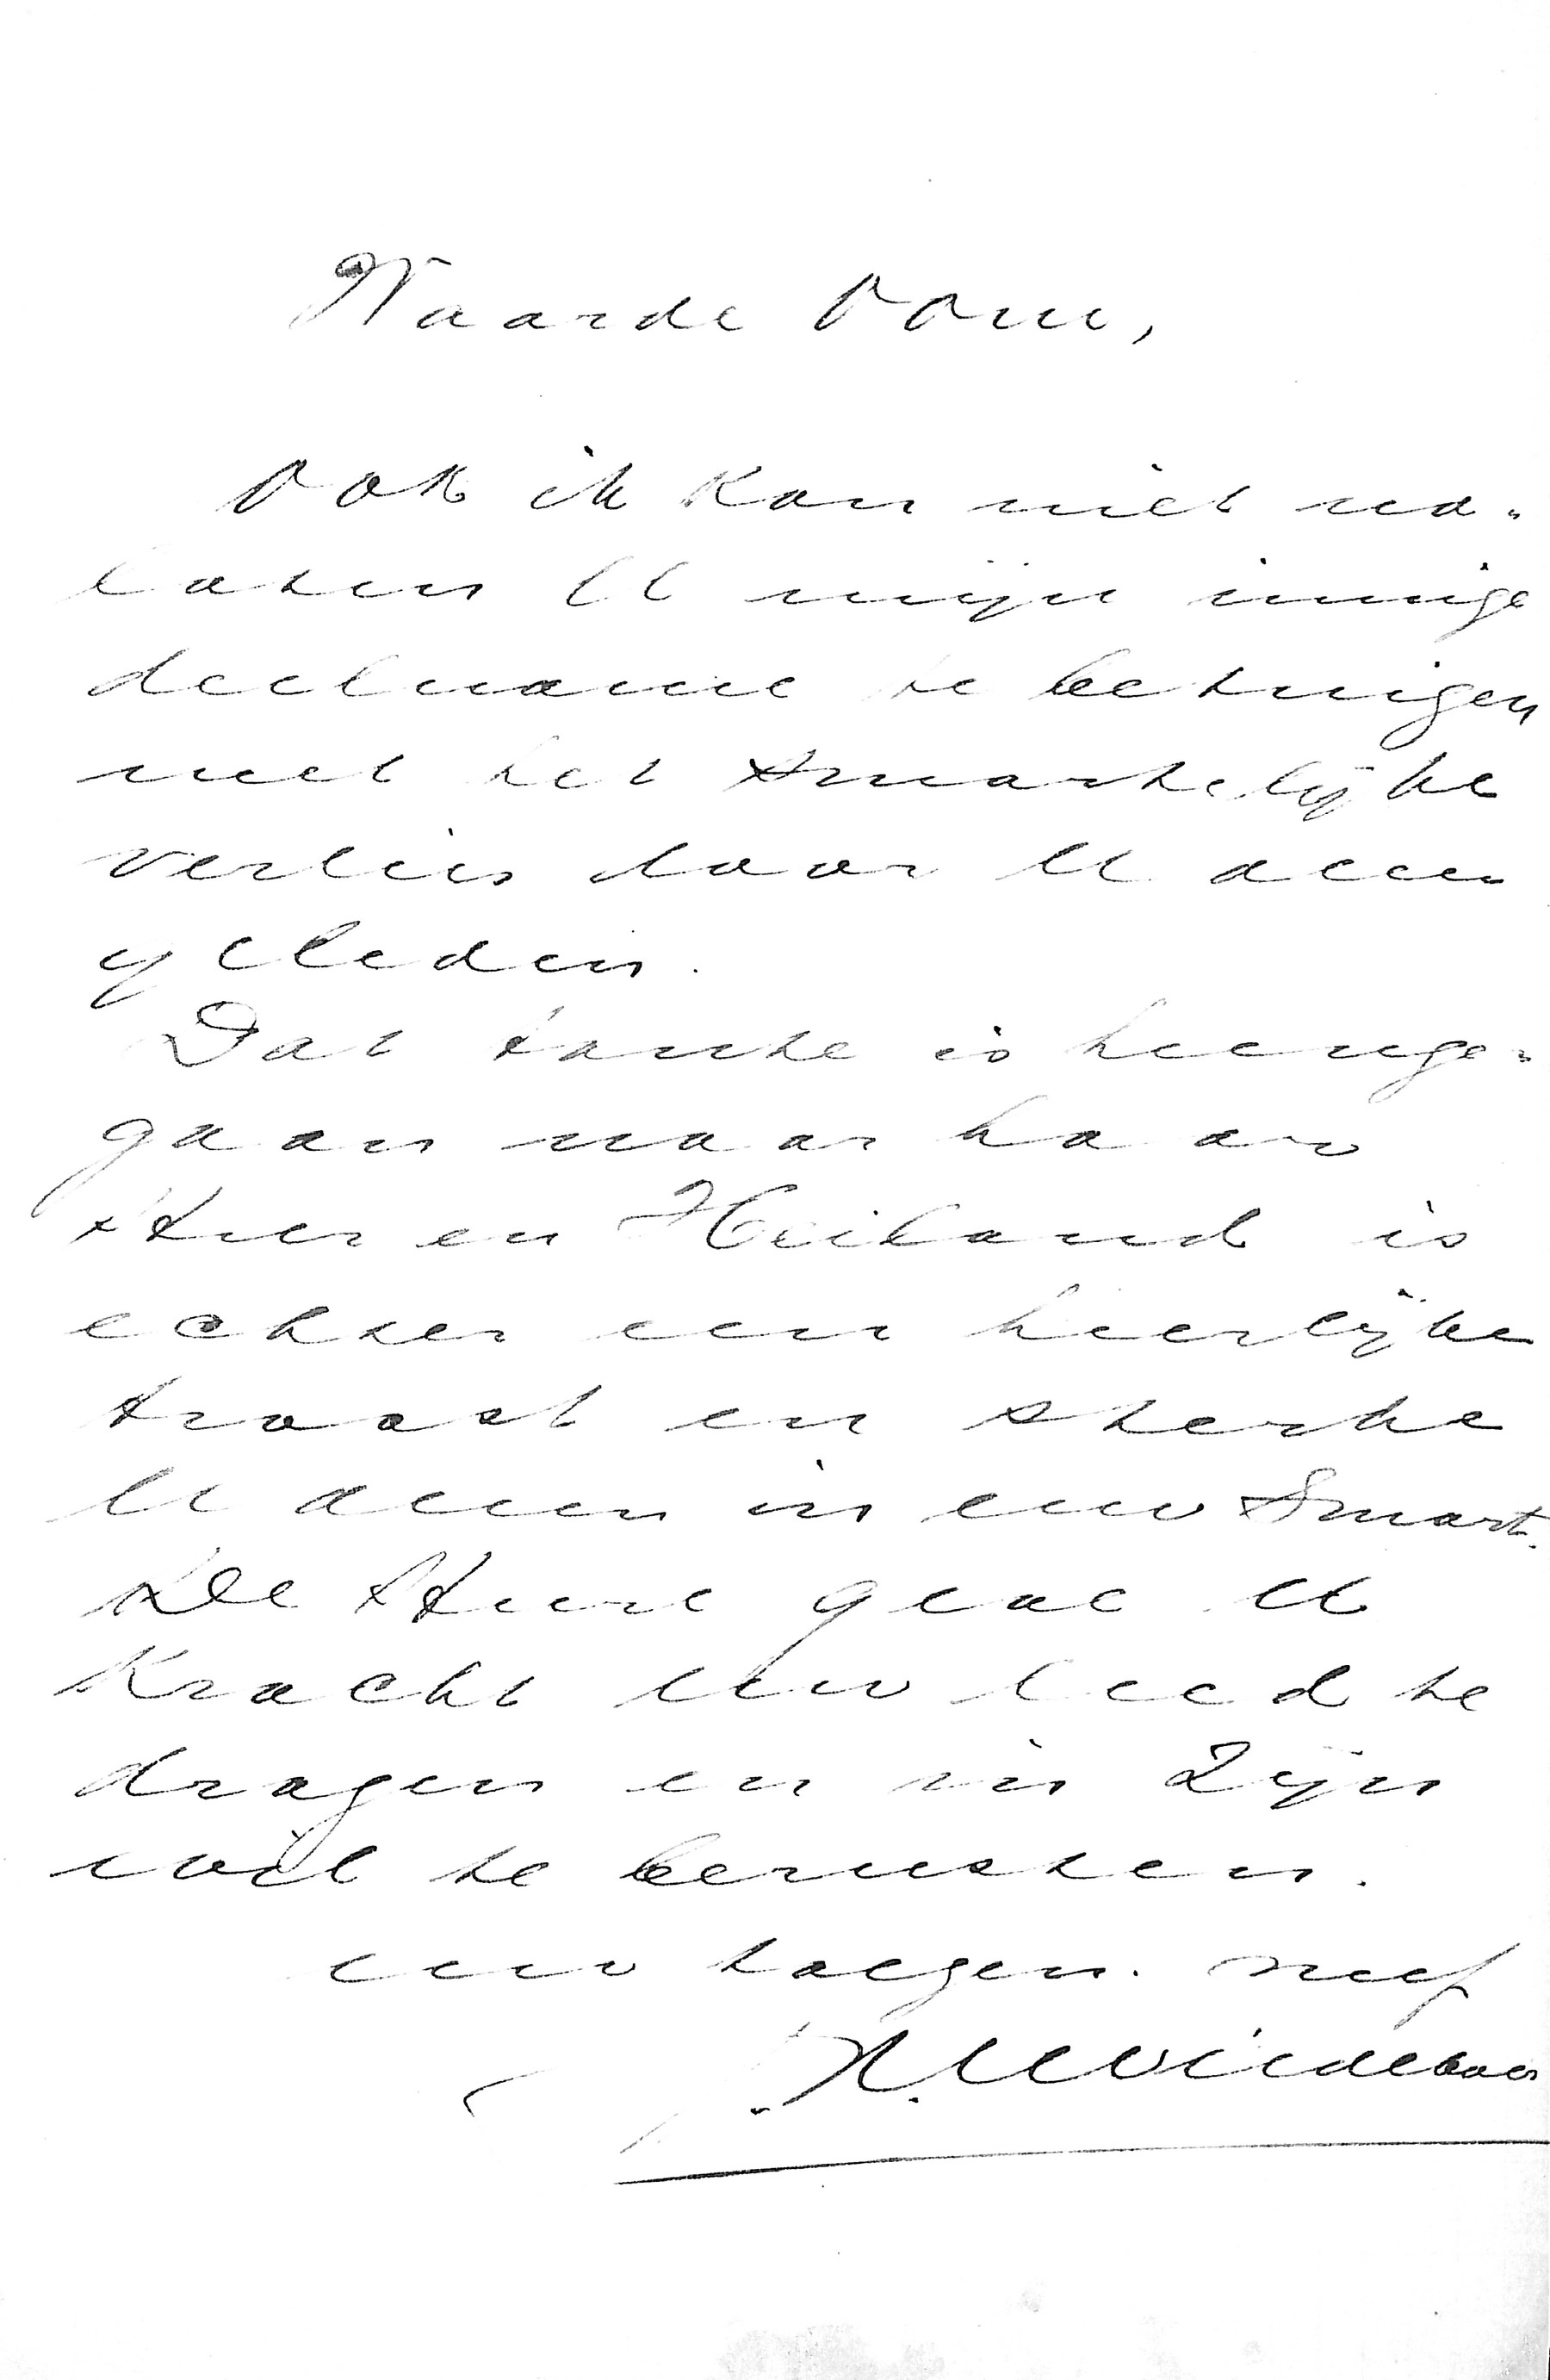 Waarde Oom,
Ook ik kan niet na-
laten U mijn innige
deelname te betuigen
met het smartelijke
verlies door U allen
geleden.
Dat tante is heenge-
gaan naar haar
Heer en Heiland is
echter een heerlijke
troost en sterke
U allen in uw smart.
De Heere geve U
kracht uw leed te
dragen en in Zijn
wil te berusten.
uw toegen. neef